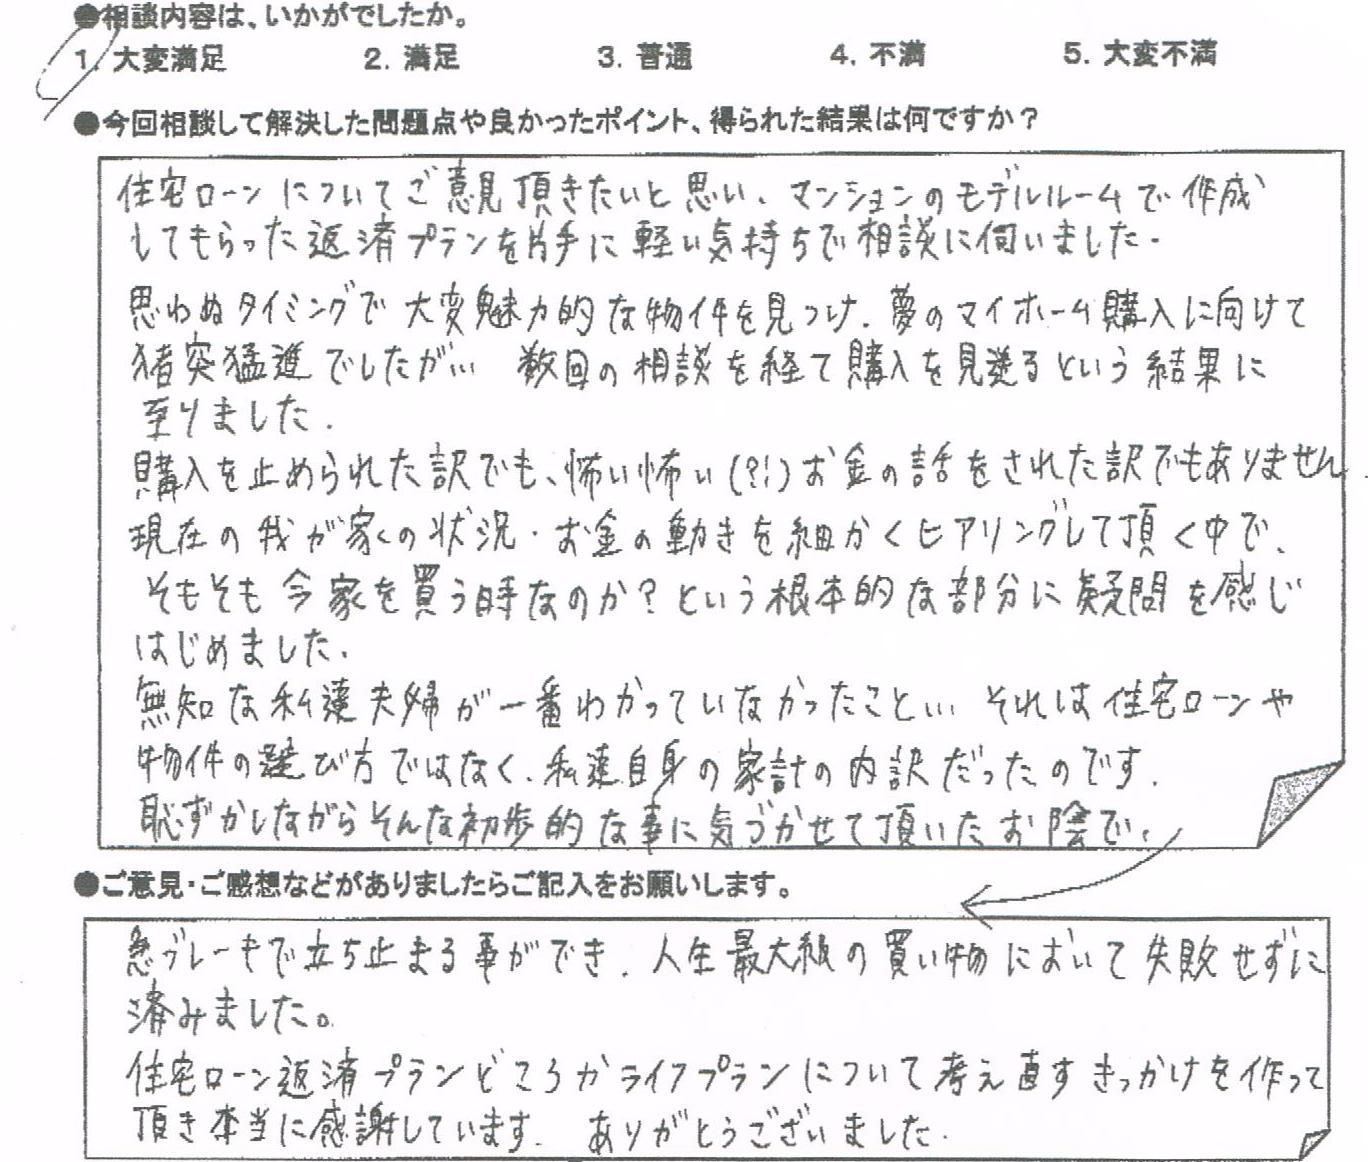 ●相談内容は、いかがでしたか。
1. 大変満足 2. 満足 3. 普通 4. 不満 5. 大変不満
●今回相談して解決した問題点や良かったポイント、得られた結果は何ですか？
住宅ローンについてご意見頂きたいと思い、マンションのモデルルームで作成
してもらった返済プランを片手に軽い気持ちで相談に伺いました。
思わぬタイミングで大変魅力的な物件を見つけ、夢のマイホーム購入に向けて
猪突猛進でしたが… 数回の相談を経て購入を見送るという結果に
至りました。
購入を止められた訳でも、怖い怖い(?!)お金の話をされた訳でもありません。
現在の我が家の状況・お金の動きを細かくヒアリングして頂く中で、
そもそも今家を買う時なのか？という根本的な部分に疑問を感じ
はじめました。
無知な私達夫婦が一番わかっていなかったこと… それは住宅ローンや
物件の選び方ではなく、私達自身の家計の内訳だったのです。
恥ずかしながらそんな初歩的な事に気づかせて頂いたお陰で、
●ご意見・ご感想などがありましたらご記入をお願いします。
急ブレーキで立ち止まる事ができ、人生最大級の買い物において失敗せずに
済みました。
住宅ローン返済プランどころかライフプランについて考え直すきっかけを作って
頂き本当に感謝しています。 ありがとうございました。